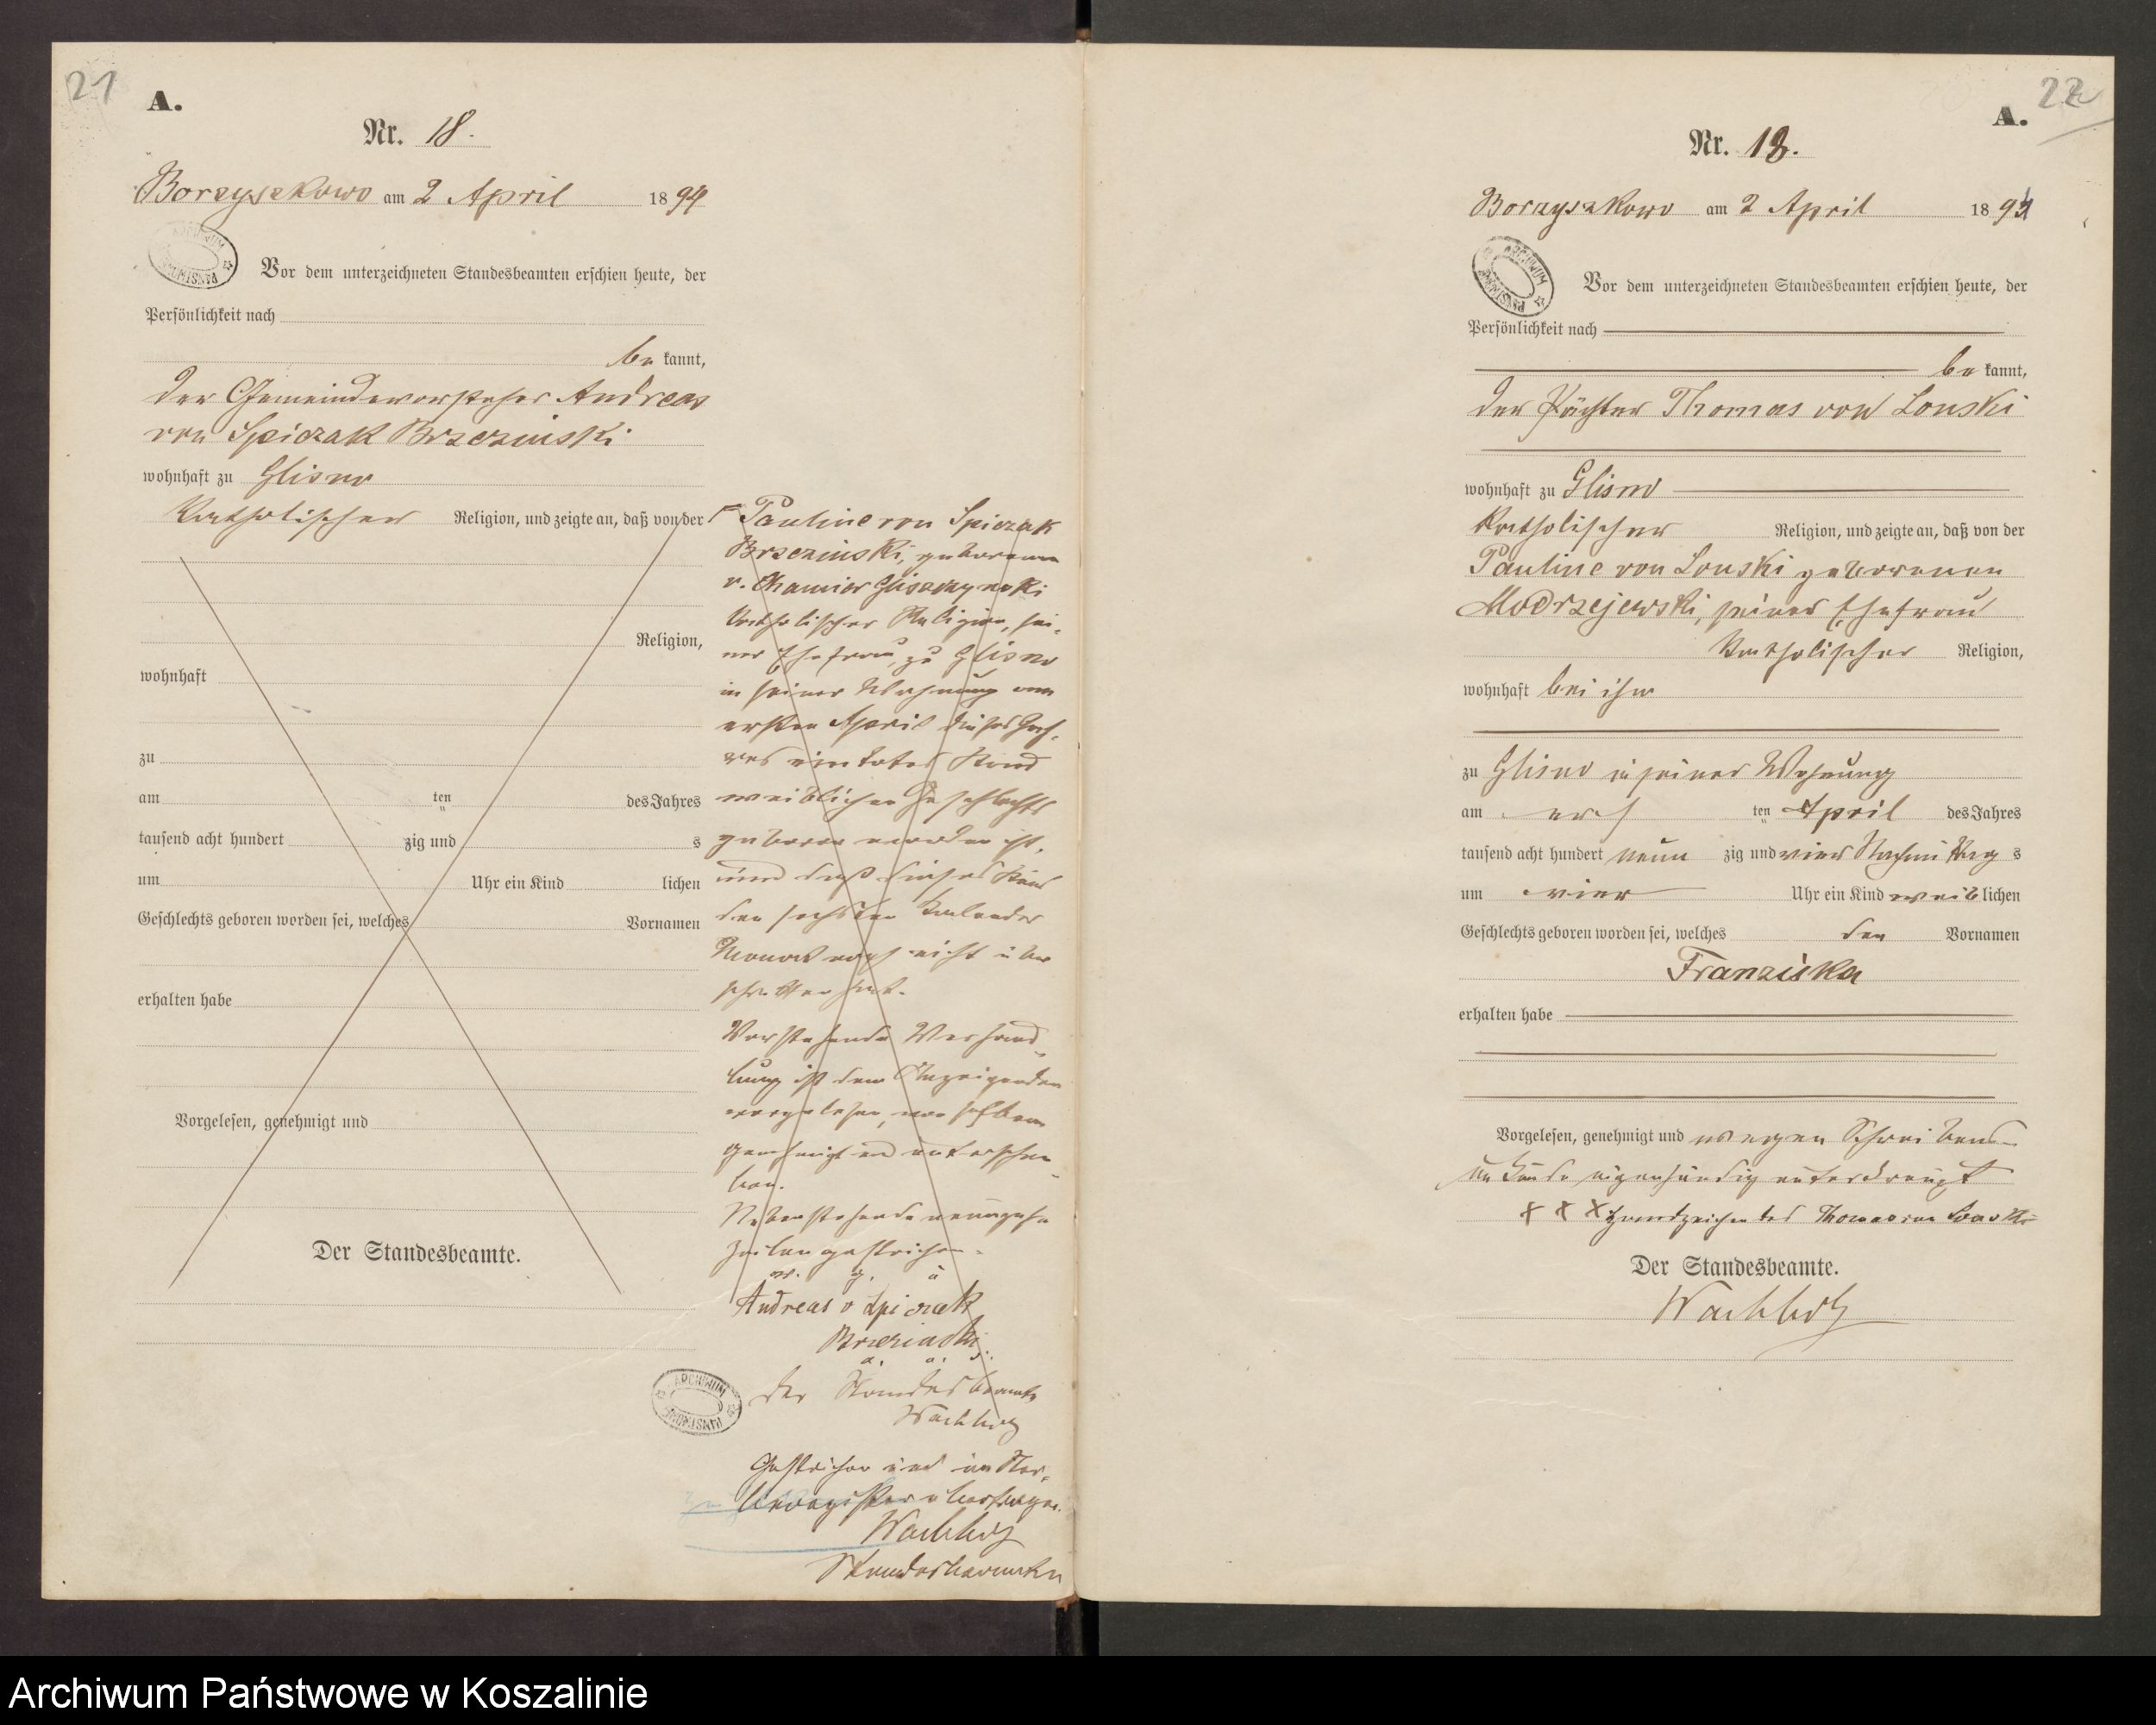 21
A.
Nr. 18.
Borzyszkowo am 2 April 1894
Vor dem unterzeichneten Standesbeamten erschien heute, der
Persönlichkeit nach
be kannt,
der Gemeindevorsteher Andreas
von Spiczak Brzezinski
wohnhaft zu Glisno
katholischer Religion, und zeigte an, daß von der
Religion,
wohnhaft
zu
am ten des Jahres
tausend acht hundert zig und s
um Uhr ein Kind lichen
Geschlechts geboren worden sei, welches Vornamen
erhalten habe
Vorgelesen, genehmigt und
Der Standesbeamte.
Pauline von Spiczak
Brzezinski, geborenen
v. Chamier Gliszczynski
katholischer Religion, sei-
ner Ehefrau, zu Glisno
in seiner Wohnung am
ersten April dieses Jah-
res ein todtes Kind
weiblichen Geschlechts
geboren worden ist,
und daß dieses Kind
den sechsten Kalender
Monat noch nicht über
schritten hat.
Vorstehende Verhand-
lung ist dem Anzeigenden
vorgelesen, von selbem
genehmigt und unterschrie-
ben.
Nebenstehende neunzehn
Zeilen gestrichen.
v. g. u
Andreas v Spiczak
Brzezinski
a. u. s.
Der Standesbeamte
Wachholz
Gestrichen und im Ster-
beregister übertragen.
Wachholz
Standesbeamter
ARCHIWUM PAŃSTWOWE
22
A.
Nr. 18.
Borzyszkowo am 2 April 1894
ARCHIWUM PAŃSTWOWE
Vor dem unterzeichneten Standesbeamten erschien heute, der
Persönlichkeit nach
be kannt,
der Pächter Thomas von Lonski
wohnhaft zu Glisno
katholischer Religion, und zeigte an, daß von der
Pauline von Lonski geborenen
Modrzejewski, seiner Ehefrau
katholischer Religion,
wohnhaft bei ihm
zu Glisno in seiner Wohnung
am ers ten April des Jahres
tausend acht hundert neun zig und vier Nachmittag s
um vier Uhr ein Kind weib lichen
Geschlechts geboren worden sei, welches den Vornamen
Franziska
erhalten habe
Vorgelesen, genehmigt und wegen Schreibens-
unkunde eigenhändig unterkreuzt
x x x Handzeichen des Thomas von Lonski
Der Standesbeamte.
Wachholz
Archiwum Państwowe w Koszalinie